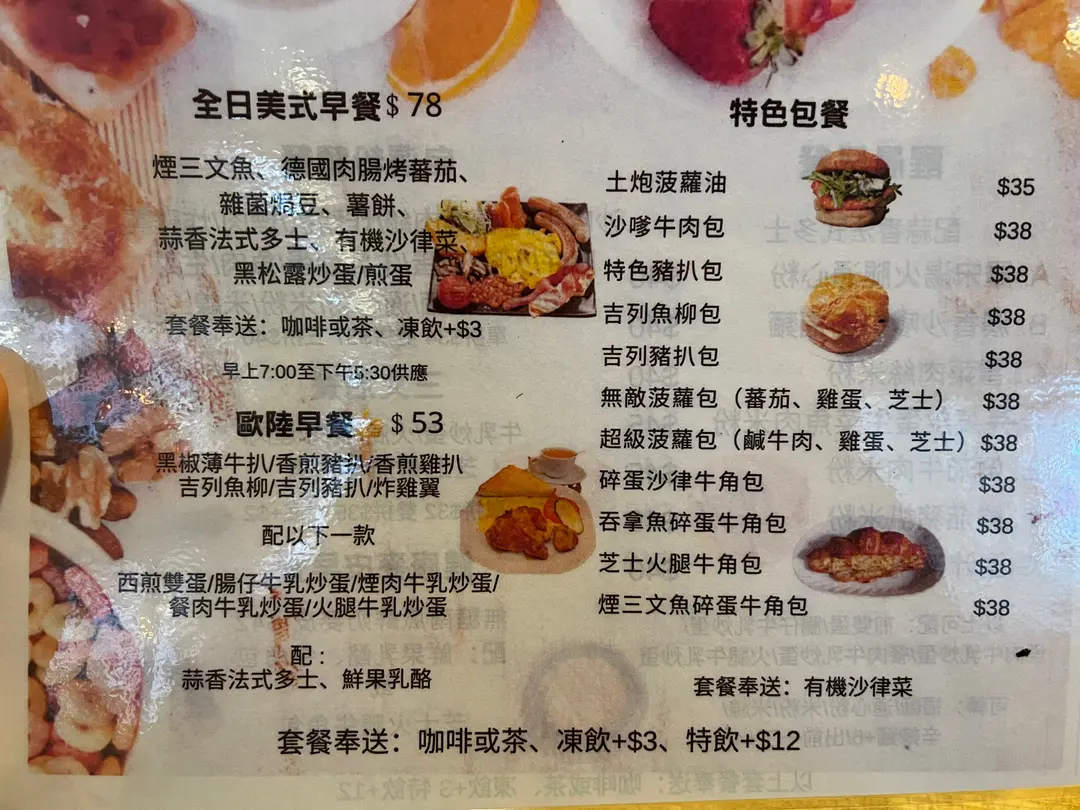 全日美式早餐$ 78
煙三文魚、德國肉腸烤蕃茄、
雜菌焗豆、薯餅、
蒜香法式多士、有機沙律菜、
黑松露炒蛋/煎蛋
套餐奉送：咖啡或茶、凍飲+$3
早上7:00至下午5:30供應
歐陸早餐 $ 53
黑椒薄牛扒/香煎豬扒/香煎雞扒
吉列魚柳/吉列豬扒/炸雞翼
配以下一款
西煎雙蛋/腸仔牛乳炒蛋/煙肉牛乳炒蛋/
餐肉牛乳炒蛋/火腿牛乳炒蛋
配：
蒜香法式多士、鮮果乳酪
特色包餐
土炮菠蘿油 $35
沙嗲牛肉包 $38
特色豬扒包 $38
吉列魚柳包 $38
吉列豬扒包 $38
無敵菠蘿包（蕃茄、雞蛋、芝士） $38
超級菠蘿包（鹹牛肉、雞蛋、芝士） $38
碎蛋沙律牛角包 $38
吞拿魚碎蛋牛角包 $38
芝士火腿牛角包 $38
煙三文魚碎蛋牛角包 $38
套餐奉送：有機沙律菜
套餐奉送：咖啡或茶、凍飲+$3、特飲+$12